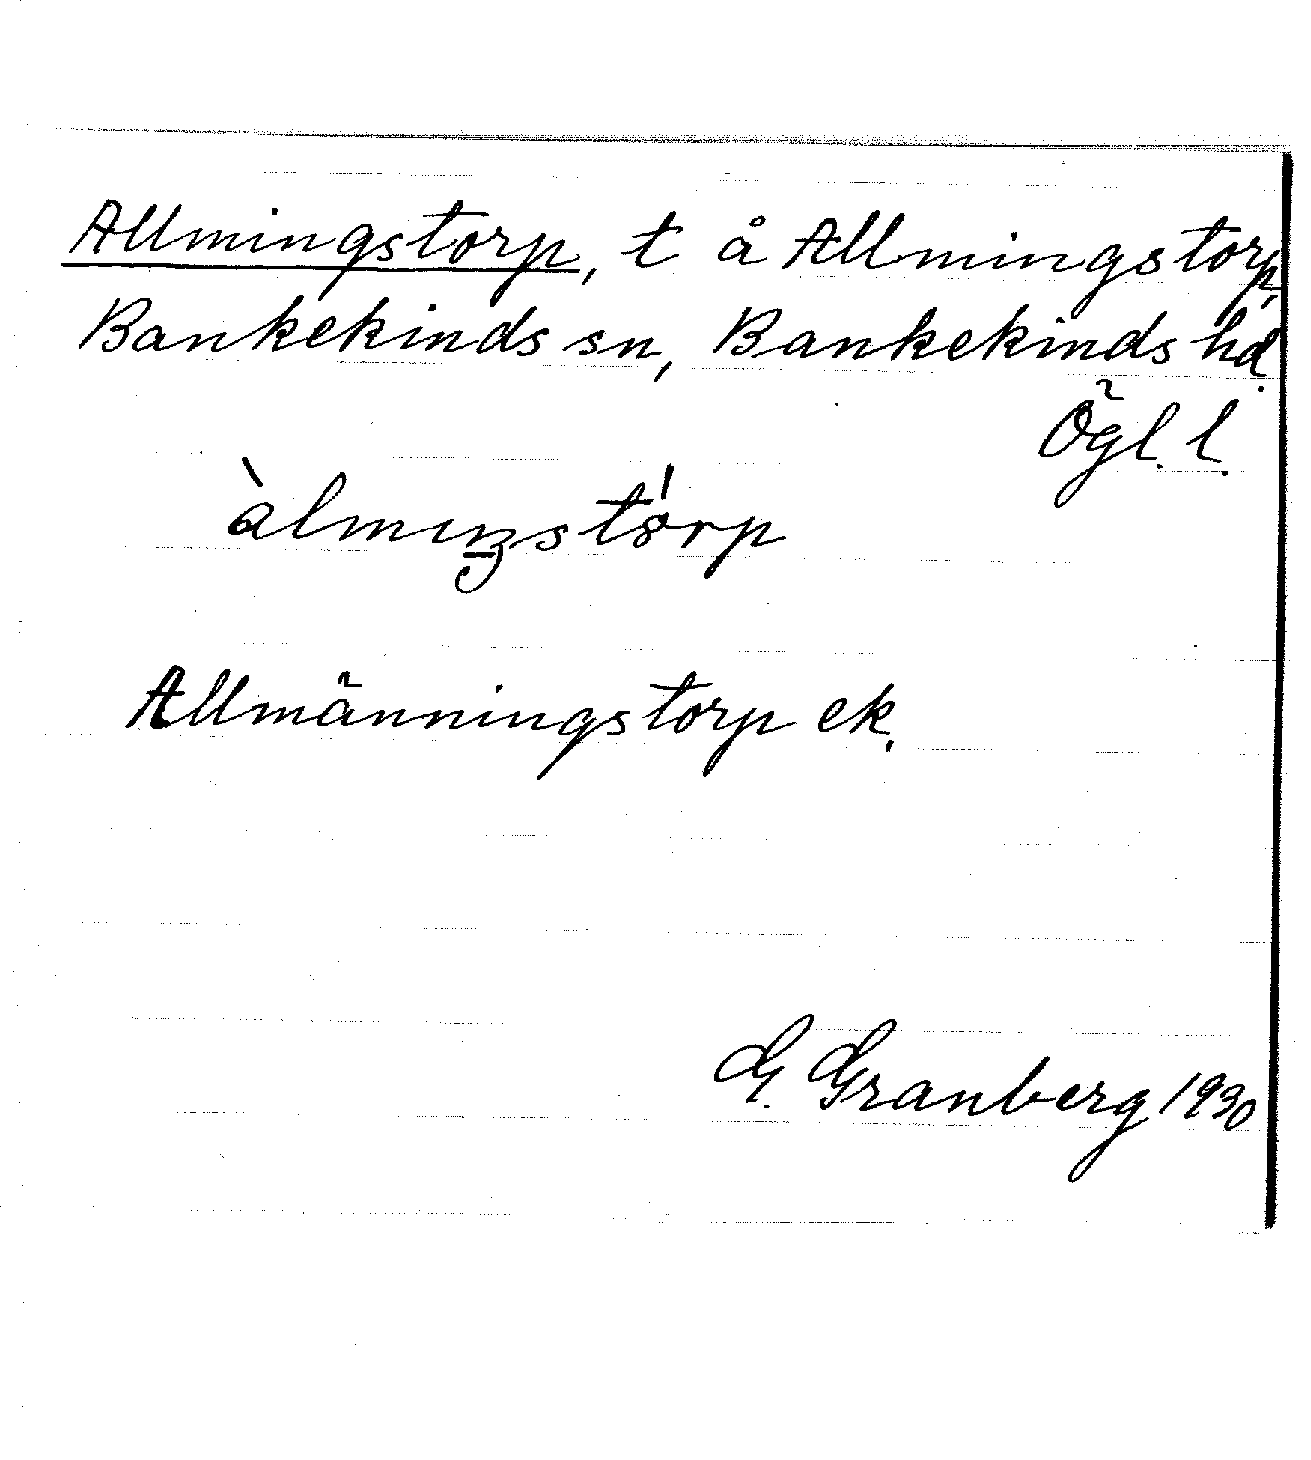 Allmingstorp, t å Allmingstorp,
Bankekinds sn, Bankekinds hd.
Ögl. l.
àlmıŋstórp
Allmänningstorp ek.
G. Granberg 1930